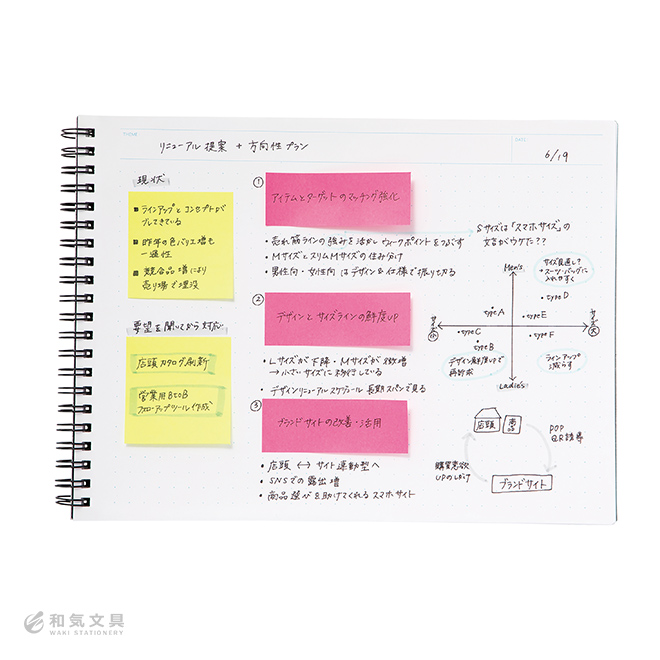 リニューアル提案 + 方向性プラン
6/19
現状
ラインアップとコンセプトが
ブレてきている
昨年の色バリエ増も
一過性
競合品増により
売り場で埋没
要望を聞いてから対応
店頭カタログ刷新
営業用BtoB
フォローアップツール作成
①
アイテムとターゲットのマッチング強化
・売れ筋ラインの強みを活かしウィークポイントをつぶす
・MサイズとスリムMサイズの住み分け
・男性向・女性向はデザイン&仕様で振り切る
②
デザインとサイズラインの鮮度UP
・Lサイズが下降・Mサイズが微増
→小さいサイズに移行している
・デザインリニューアルスケジュール 長期スパンで見る
③
ブランドサイトの改善・活用
・店頭 ↔ サイト連動型へ
・SNSでの露出増
・商品選びを助けてくれるスマホサイト
Sサイズは「スマホサイズ」の
文言がウケた??
Men's
サイズ見直し?
→スーツ・バッグに
入れやすく
・typeA
・typeD
・typeE
サイズ小
サイズ大
・typeC
・typeF
・typeB
デザイン鮮度UPで
再訴求
ラインアップ
減らす
Ladie's
店頭
商品
POP
QR誘導
購買意欲
UPのしかけ
ブランドサイト
和気文具
WAKI STATIONERY